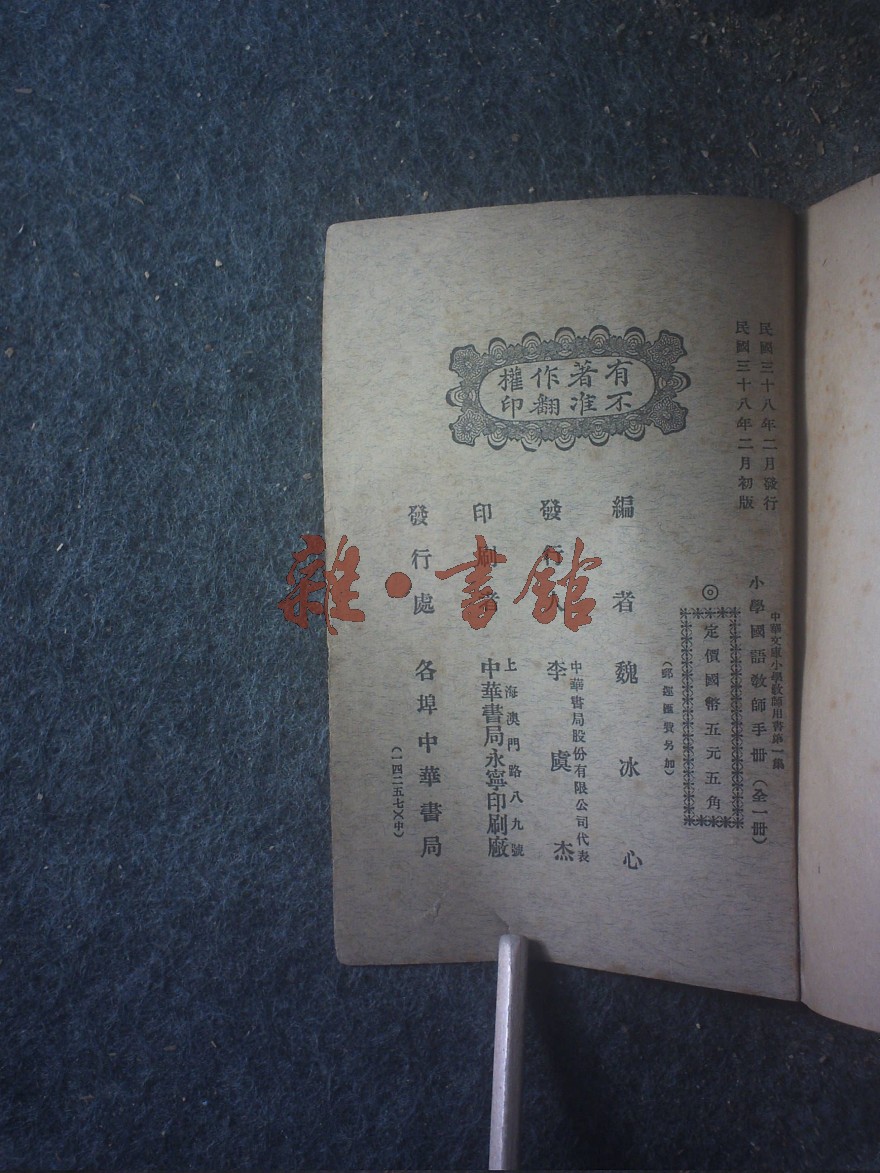 民國三十八年二月發行
民國三十八年二月初版
中華文庫小學教師用書第一集
小學國語教師手冊(全一冊)
◎定價國幣五元五角
(郵運匯費另加)
有著作權
不准翻印
編者 魏冰心
發行人 中華書局股份有限公司代表
李虞杰
印刷者 上海澳門路八九號
中華書局永寧印刷廠
發行處 各埠中華書局
(一四二五七)(中)
雜·書館